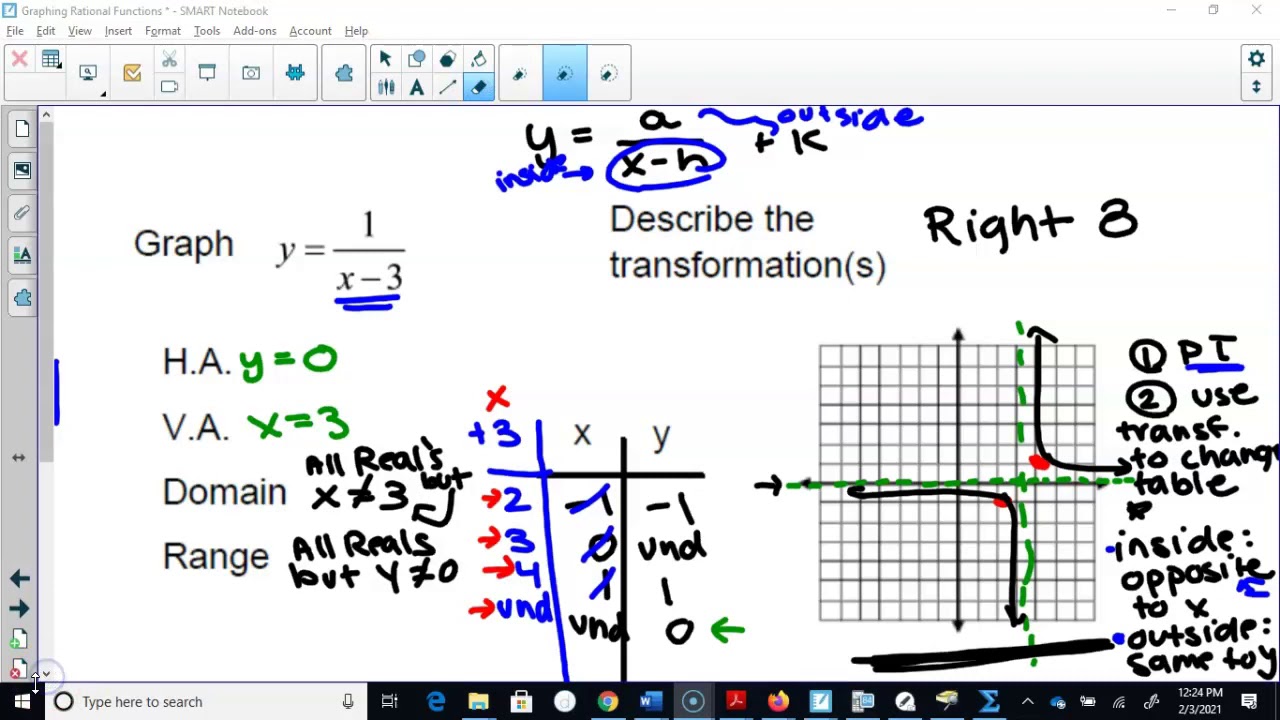 Graphing Rational Functions * - SMART Notebook
File Edit View Insert Format Tools Add-ons Account Help
y = a/(x-h) + K
outside
inside
Graph y = 1/(x − 3)
Describe the
transformation(s)
Right 3
H.A. y = 0
V.A. x = 3
Domain All Real's but
x ≠ 3
Range All Reals
but y ≠ 0
x
+3 x y
2 -1 -1
3 0 und
4 1 1
und und 0
① PT
② use
transf.
to change
table
*
inside:
opposite
to x
outside:
same to y
Type here to search
12:24 PM
2/3/2021